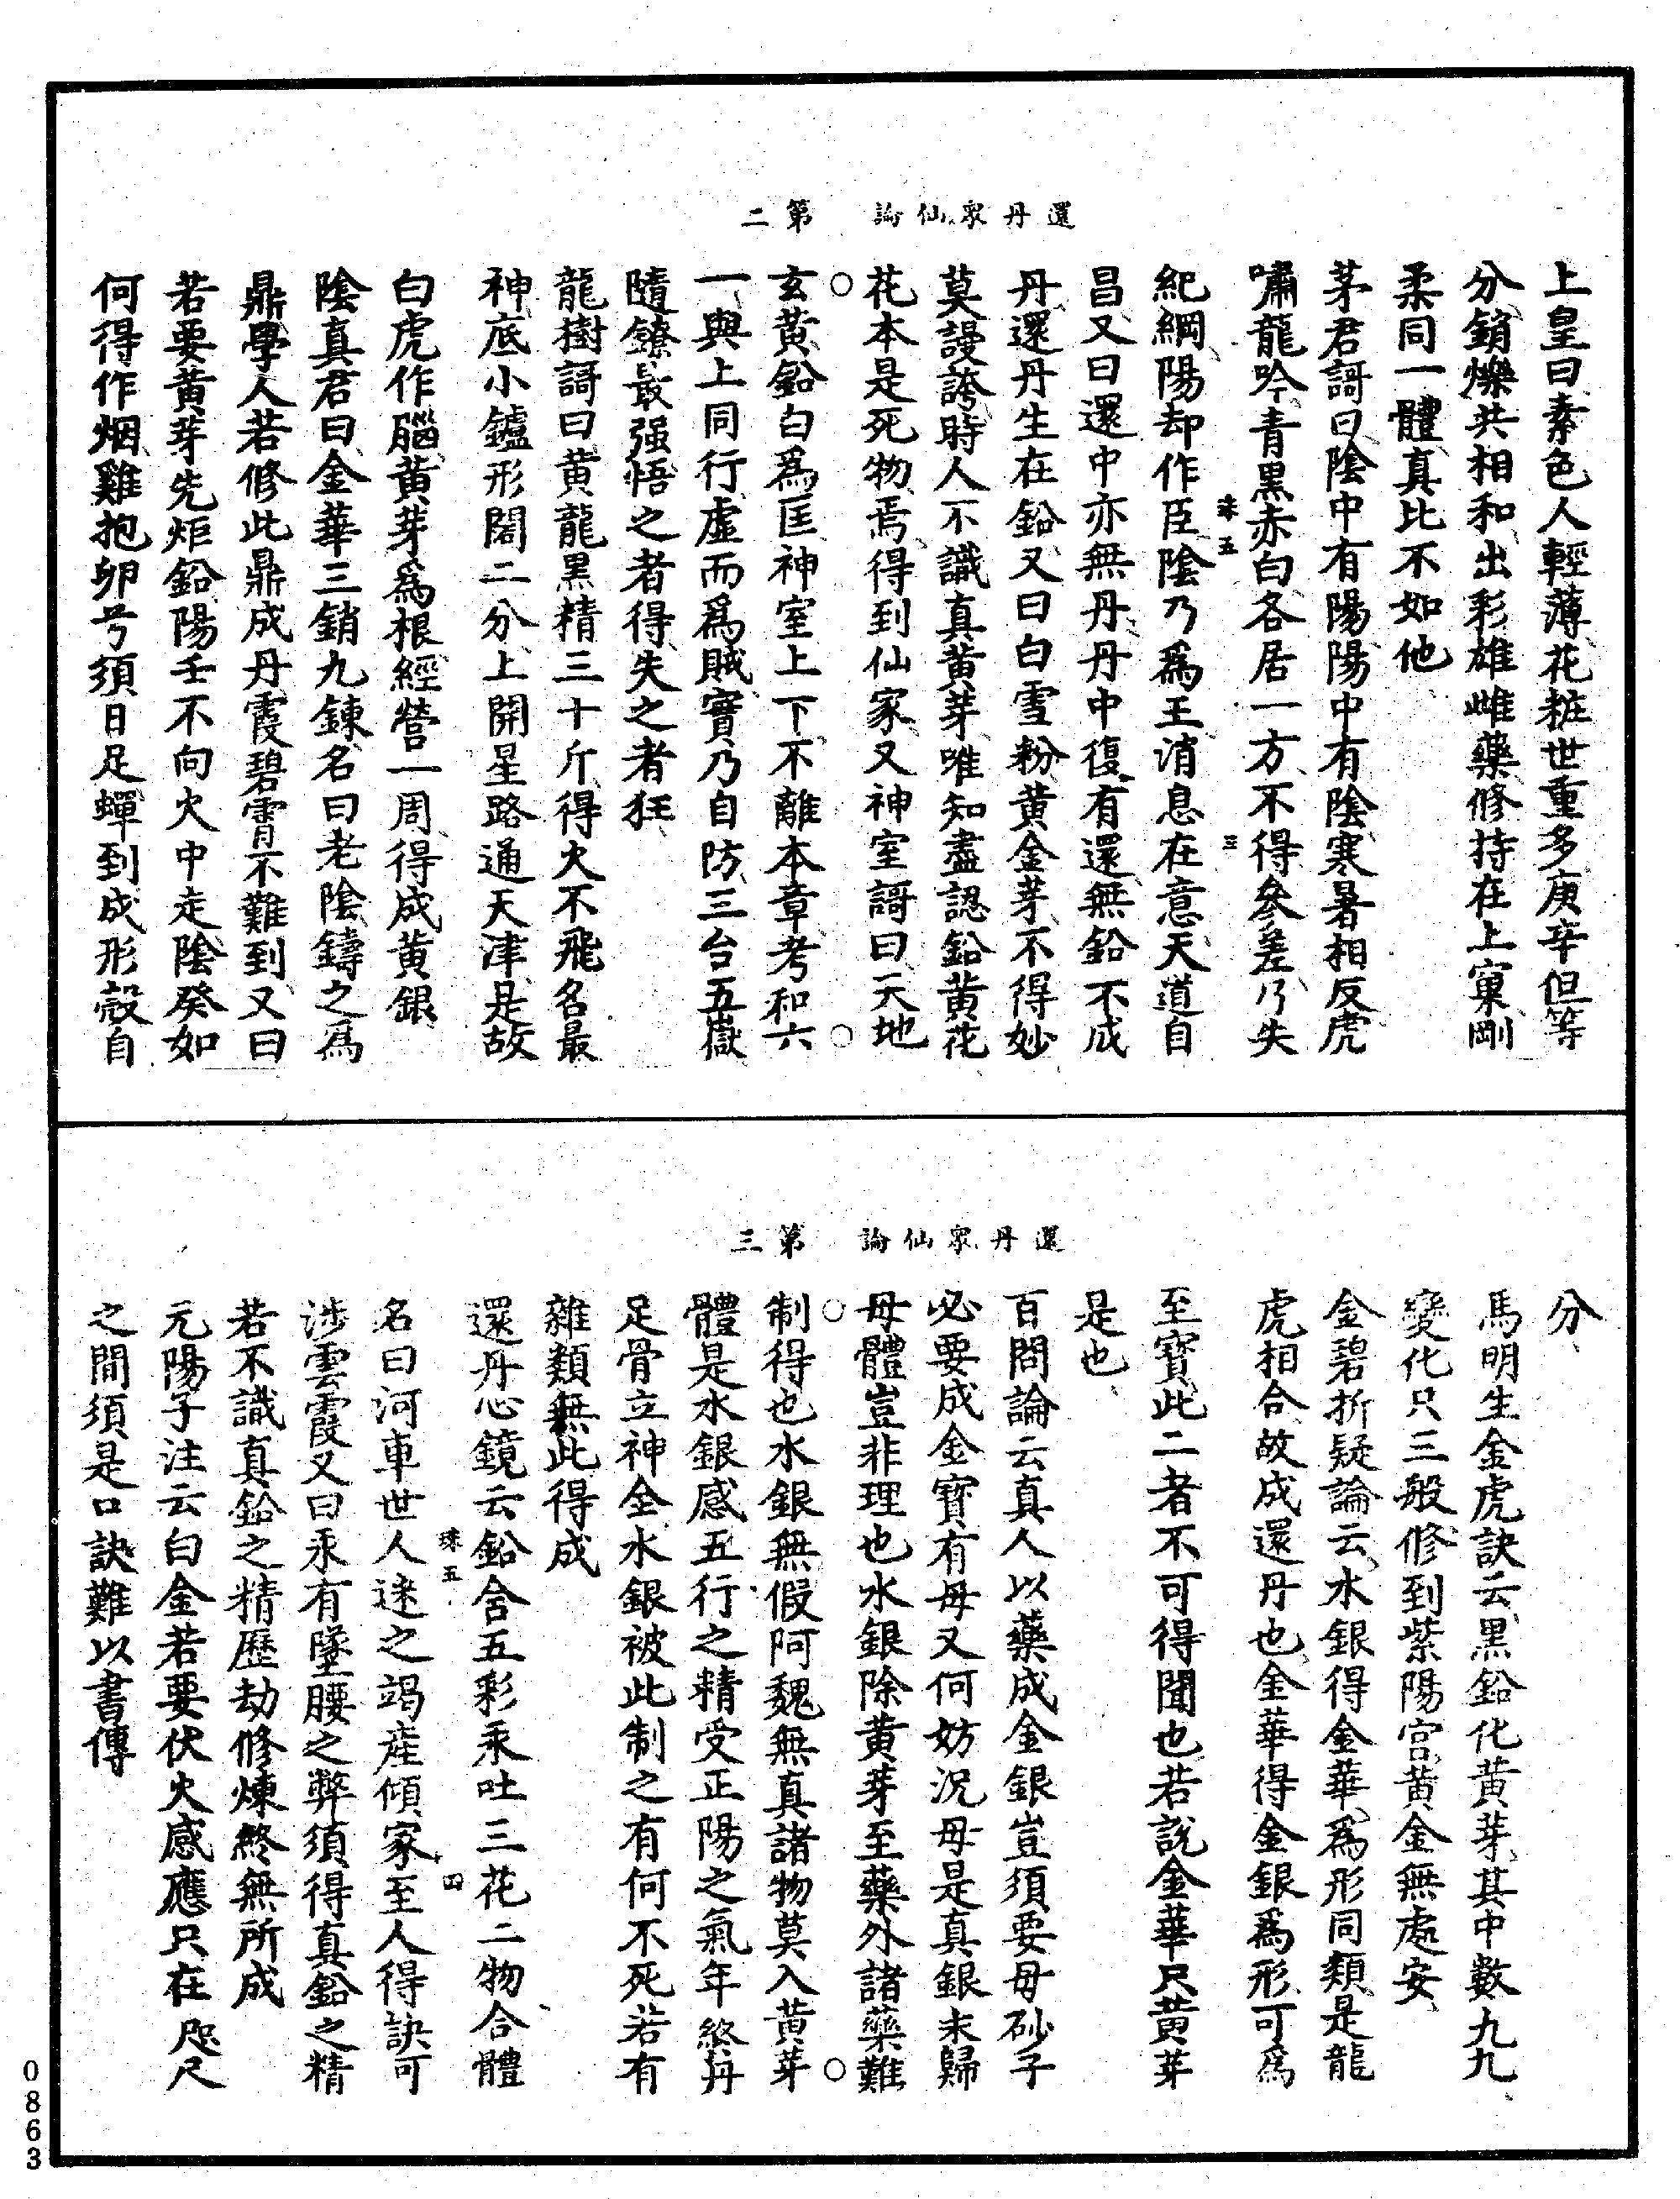 還丹衆仙論　第二
上皇曰素色人輕薄花粧世重多庚辛但等
分銷爍共相和出彩雄雌藥修持在上窠剛
柔同一體真比不如他
茅君謌曰陰中有陽陽中有陰寒暑相反虎
嘯龍吟青黑赤白各居一方不得參差乃失
珠五　三
紀綱陽却作臣陰乃爲王消息在意天道自
昌又曰還中亦無丹丹中復有還無鉛不成
丹還丹生在鉛又曰白雪粉黄金芽不得妙
莫謾誇時人不識真黄芽唯知盡認鉛黄花
花本是死物焉得到仙家又神室謌曰天地
玄黄鉛白爲匡神室上下不離本章考和六
一與上同行虛而爲賊實乃自防三台五嶽
隨鐐最强悟之者得失之者狂
龍樹謌曰黄龍黑精三十斤得火不飛名最
神底小鑪形闊二分上開星路通天津是故
白虎作腦黄芽爲根經營一周得成黄銀
陰真君曰金華三銷九鍊名曰老陰鑄之爲
鼎學人若修此鼎成丹霞碧霄不難到又曰
若要黄芽先炬鉛陽壬不向火中走陰癸如
何得作烟雞抱卵兮須日足蟬到成形殼自
還丹衆仙論　第三
分
馬明生金虎訣云黑鉛化黄芽其中數九九
變化只三般修到紫陽宫黄金無處安
金碧折疑論云水銀得金華爲形同類是龍
虎相合故成還丹也金華得金銀爲形可爲
至寶此二者不可得聞也若說金華只黄芽
是也
百問論云真人以藥成金銀豈須要母砂子
必要成金寶有母又何妨況母是真銀末歸
母體豈非理也水銀除黄芽至藥外諸藥難
制得也水銀無假阿魏無真諸物莫入黄芽
體是水銀感五行之精受正陽之氣年終丹
足骨立神全水銀被此制之有何不死若有
雜類無此得成
還丹心鏡云鉛含五彩汞吐三花二物合體
珠五　四
名曰河車世人迷之竭産傾家至人得訣可
涉雲霞又曰汞有墜腰之弊須得真鉛之精
若不識真鉛之精歷劫修煉終無所成
元陽子注云白金若要伏火感應只在咫尺
之間須是口訣難以書傳
0863